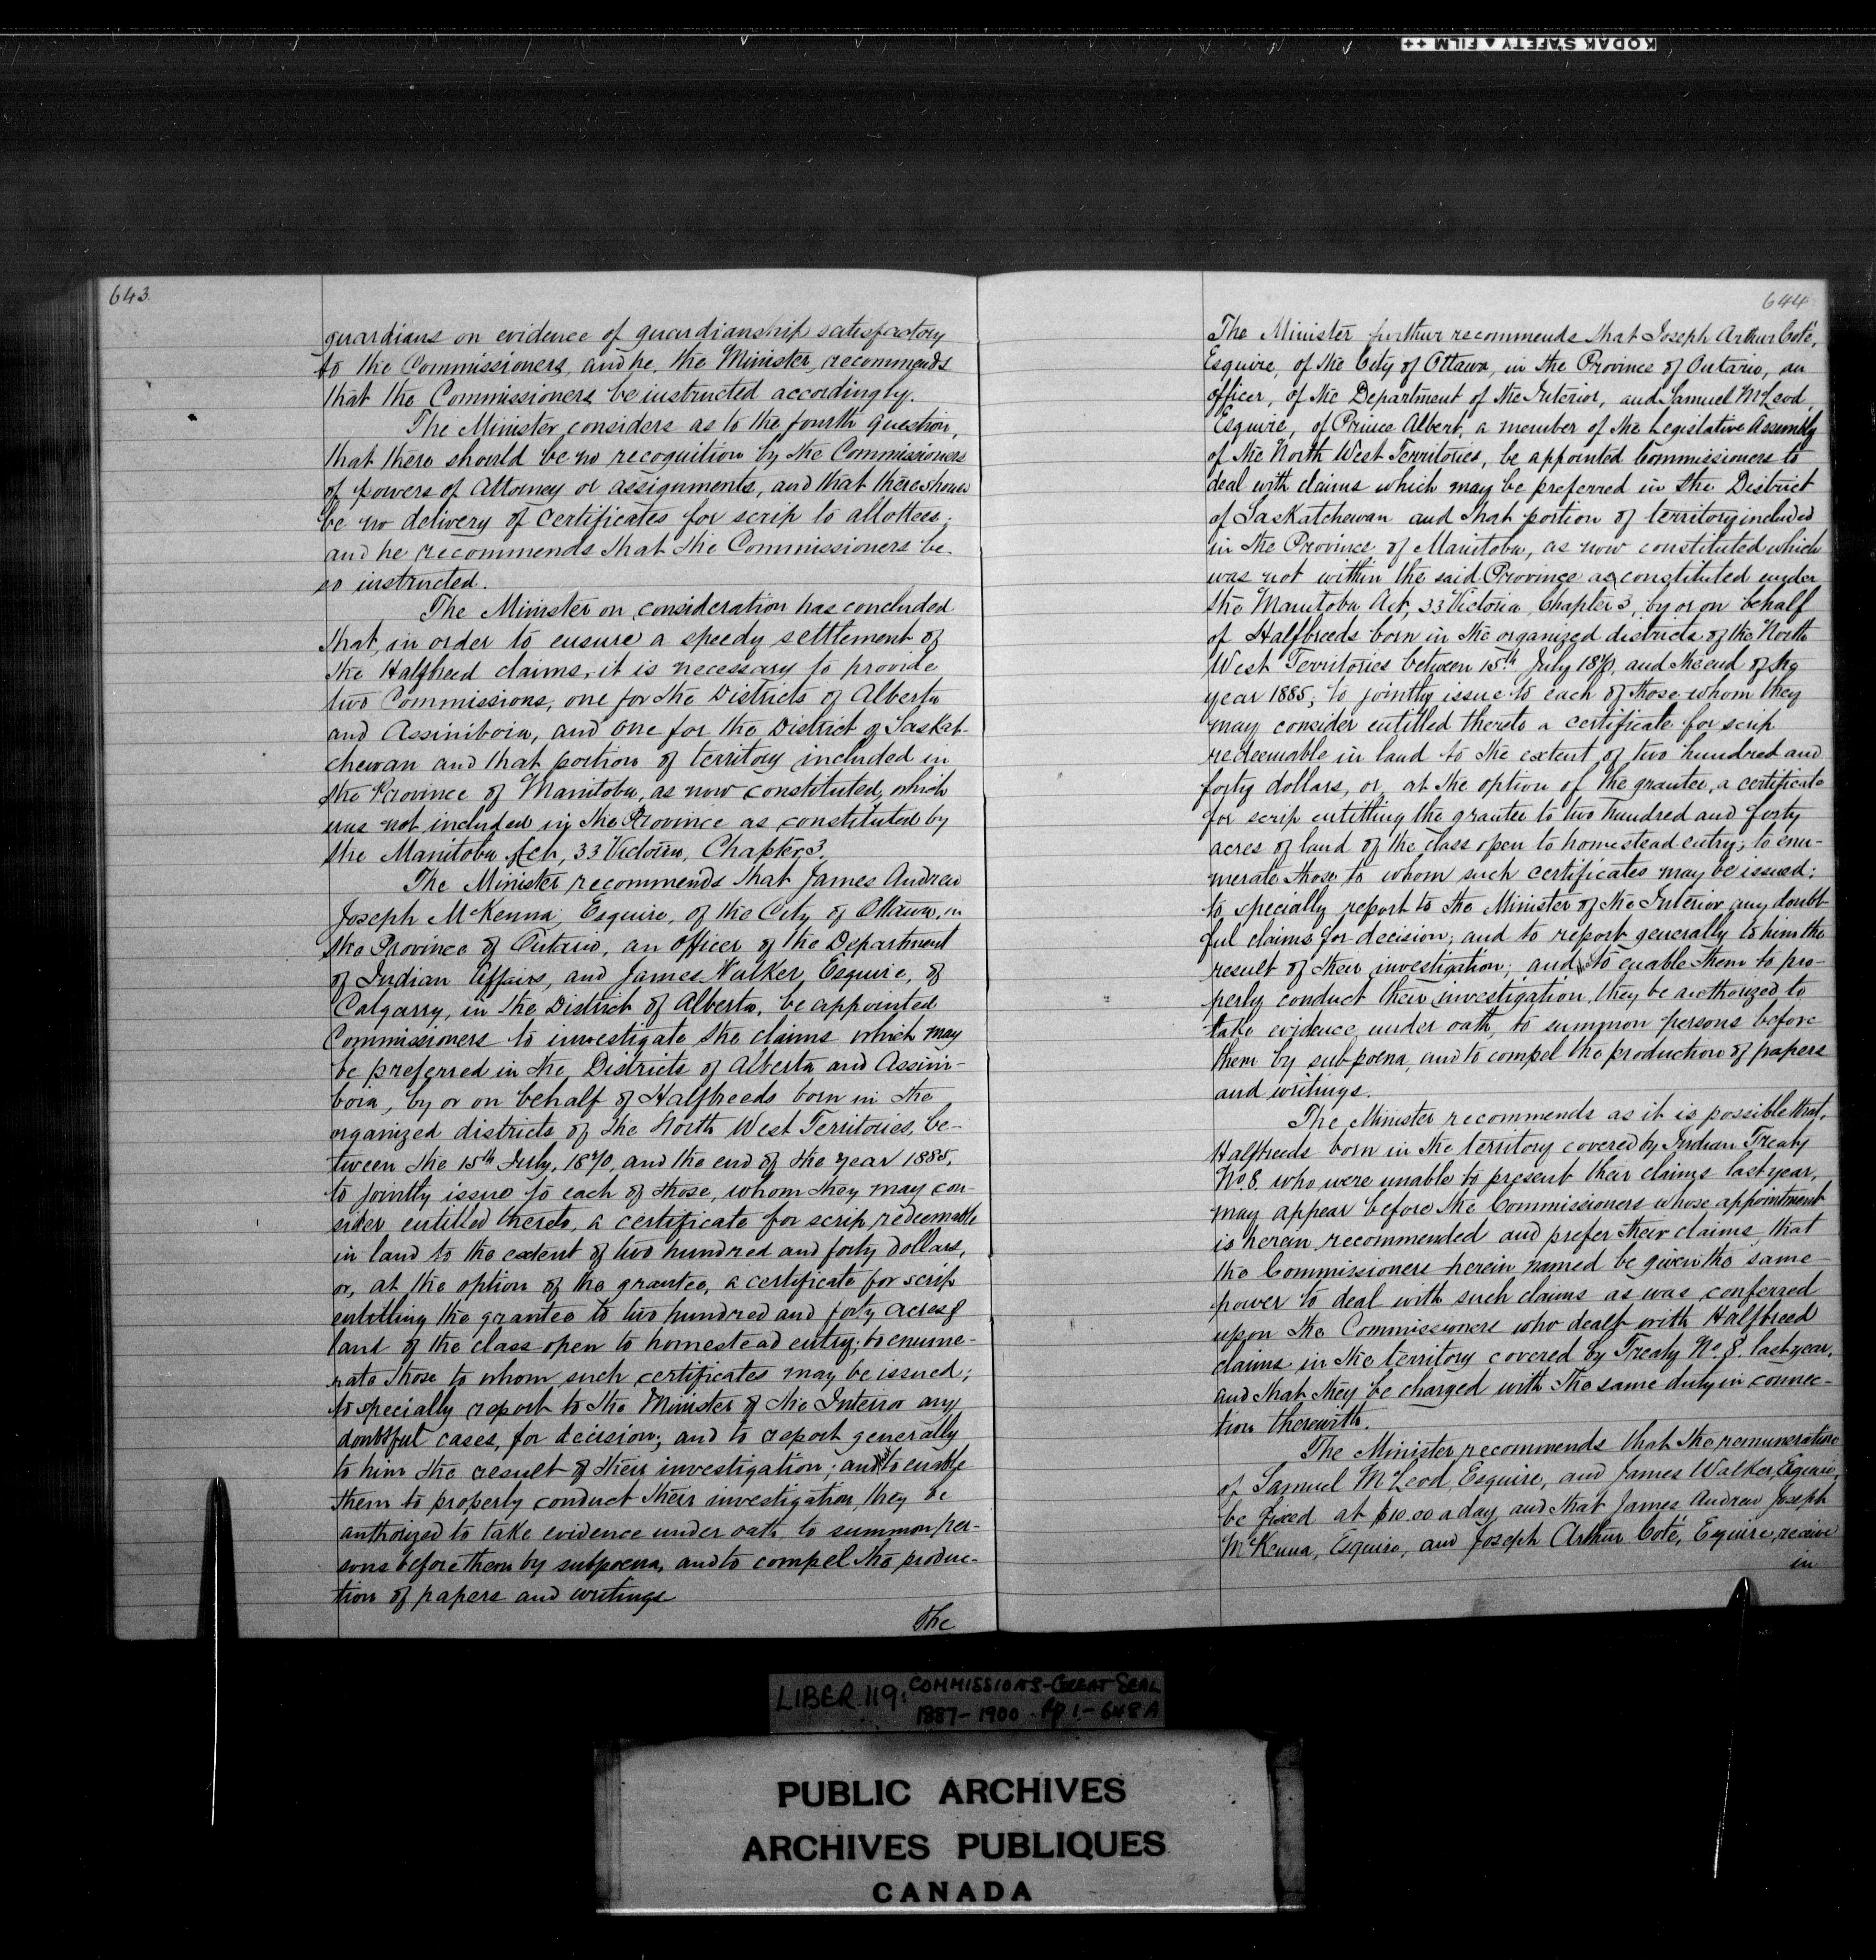 KODAK SAFETY ▲ FILM ++
643.
guardians on evidence of guardianship satisfactory
to the Commissioners, and he, the Minister, recommends
that the Commissioners be instructed accordingly.
The Minister considers as to the fourth question,
that there should be no recognition by the Commissioners
of powers of Attorney or assignments, and that there should
be no delivery of certificates for scrip to allottees;
and he recommends that the Commissioners be
so instructed.
The Minister on consideration has concluded
that, in order to ensure a speedy settlement of
the Halfbreed claims, it is necessary to provide
two Commissions, one for the Districts of Alberta
and Assiniboia, and one for the District of Saskat-
chewan and that portion of territory included in
the Province of Manitoba, as now constituted, which
was not included in the Province as constituted by
the Manitoba Act, 33 Victoria, Chapter 3.
The Minister recommends that James Andrew
Joseph McKenna, Esquire, of the City of Ottawa, in
the Province of Ontario, an officer of the Department
of Indian Affairs, and James Walker, Esquire, of
Calgarry, in the District of Alberta, be appointed
Commissioners to investigate the claims which may
be preferred in the Districts of Alberta and Assini-
boia, by or on behalf of Halfbreeds born in the
organized districts of the North West Territories, be-
tween the 15th July, 1870, and the end of the year 1885,
to jointly issue to each of those, whom they may con-
sider entitled thereto, a certificate for scrip redeemable
in land to the extent of two hundred and forty dollars,
or, at the option of the grantee, a certificate for scrip
entitling the grantee to two hundred and forty acres of
land of the class open to homestead entry; to enume-
rate those to whom such certificates may be issued;
to specially report to the Minister of the Interior any
doubtful cases, for decision; and to report generally
to him the result of their investigation; and to enable
them to properly conduct their investigation, they be
authorized to take evidence under oath, to summon per-
sons before them by subpoena, and to compel the produc-
tion of papers and writings
The
644
The Minister further recommends that Joseph Arthur Coté,
Esquire, of the City of Ottawa, in the Province of Ontario, an
officer, of the Department of the Interior, and Samuel McLeod,
Esquire, of Prince Albert, a member of the Legislative Assembly
of the North West Territories, be appointed Commissioners to
deal with claims which may be preferred in the District
of Saskatchewan and that portion of territory included
in the Province of Manitoba, as now constituted which
was not within the said Province as constituted under
the Manitoba Act, 33 Victoria, Chapter 3, by or on behalf
of Halfbreeds born in the organized districts of the North
West Territories between 15th July 1870, and the end of the
year 1885; to jointly issue to each of those whom they
may consider entitled thereto a certificate for scrip
redeemable in land to the extent of two hundred and
forty dollars, or, at the option of the grantee, a certificate
for scrip entitling the grantee to two hundred and forty
acres of land of the class open to homestead entry; to enu-
merate those to whom such certificates may be issued;
to specially report to the Minister of the Interior any doubt-
ful claims for decision; and to report generally to him the
result of their investigation; and that to enable them to pro-
perly conduct their investigation, they be authorized to
take evidence under oath, to summon persons before
them by subpoena, and to compel the production of papers
and writings.
The Minister recommends as it is possible that,
Halfbreeds born in the territory covered by Indian Treaty
No. 8. who were unable to present their claims last year,
may appear before the Commissioners whose appointment
is herein recommended and prefer their claims, that
the Commissioners herein named be given the same
power to deal with such claims as was conferred
upon the Commissioners who dealt with Halfbreed
claims in the territory covered by Treaty No. 8. last year,
and that they be charged with the same duty in connec-
tion therewith.
The Minister recommends that the remuneration
of Samuel McLeod, Esquire, and James Walker, Esquire,
be fixed at $10.00 a day and that James Andrew Joseph
McKenna, Esquire, and Joseph Arthur Coté, Esquire, receive
in
LIBER 119: COMMISSIONS-GREAT SEAL
1887-1900 - Pp 1-648A
PUBLIC ARCHIVES
ARCHIVES PUBLIQUES
CANADA